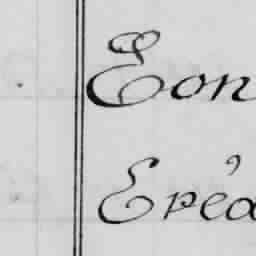 Eon
Epéa